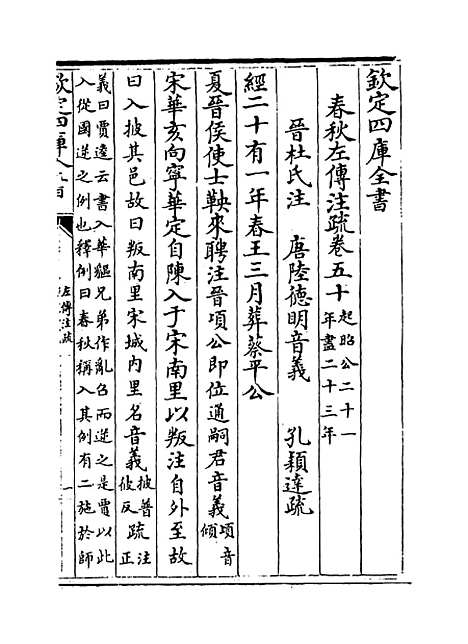 欽定四庫全書
春秋左傳注疏卷五十起昭公二十一年盡二十三年
晉杜氏注 唐陸德明音義 孔穎達疏
經二十有一年春王三月葬蔡平公
夏晉侯使士鞅來聘注晉頃公即位通嗣君音義頃音傾
宋華亥向寧華定自陳入于宋南里以叛注自外至故
曰入披其邑故曰叛南里宋城内里名音義披普彼反疏注正
義曰賈逵云書入華貙兄弟作亂召而逆之是賈以此
入從國逆之例也釋例曰春秋稱入其例有二施於師
欽定四庫全書
左傳注疏
一